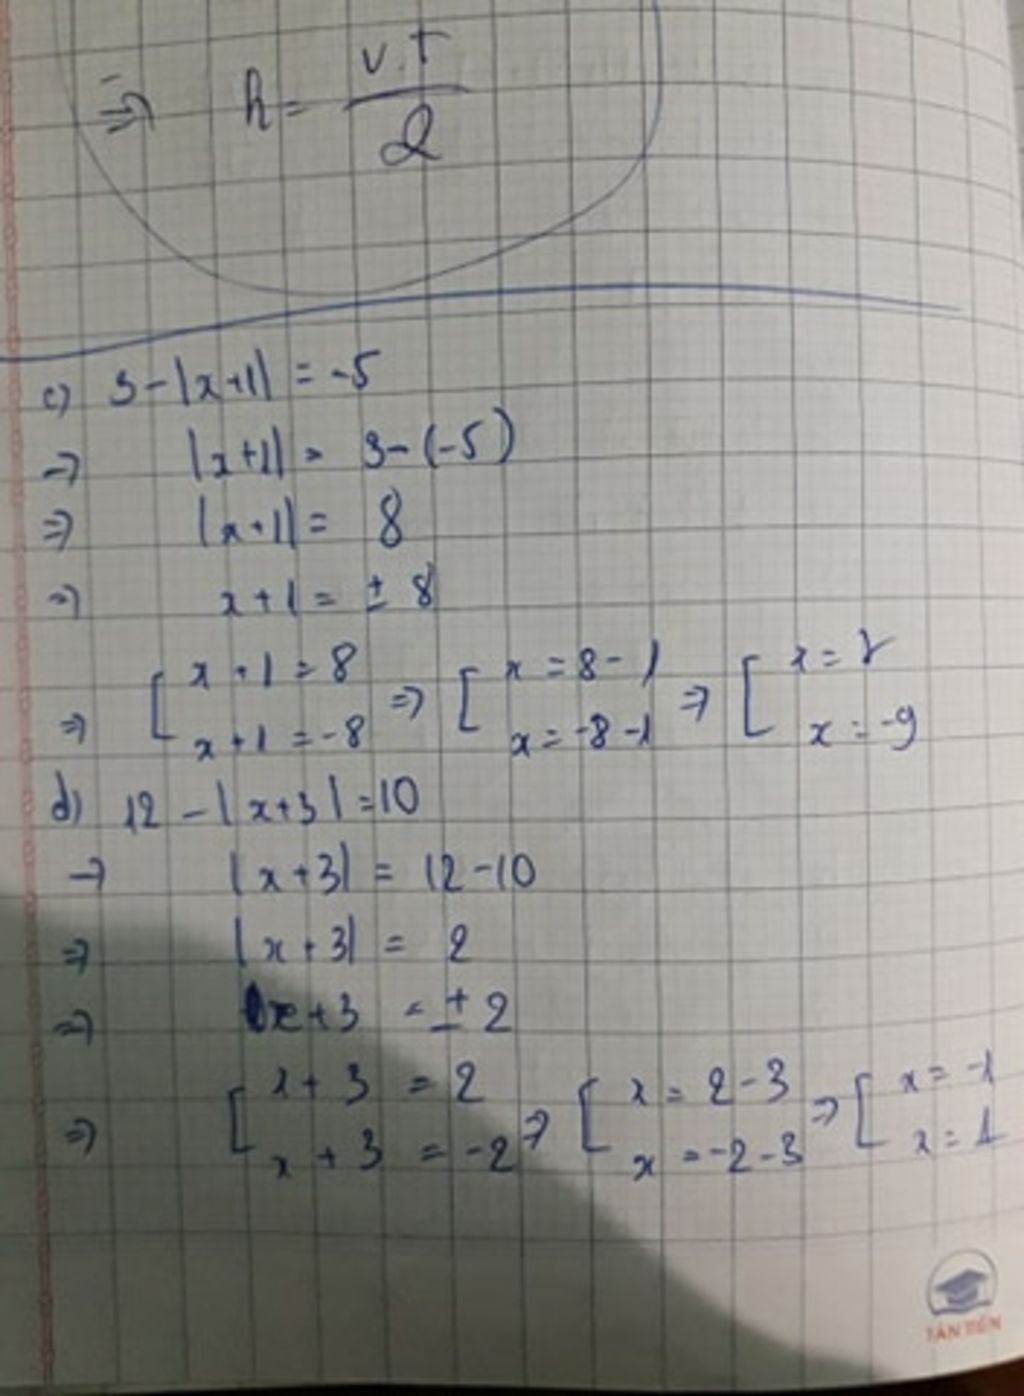 ⇒ h = v.t / 2
c) 3 - |x+1| = -5
⇒ |x+1| = 3 - (-5)
⇒ |x+1| = 8
⇒ x+1 = ± 8
⇒ [ x+1 = 8 ; x+1 = -8 ⇒ [ x = 8-1 ; x = -8-1 ⇒ [ x = 7 ; x = -9
d) 12 - |x+3| = 10
→ |x+3| = 12-10
⇒ |x+3| = 2
⇒ x+3 = ± 2
⇒ [ x+3 = 2 ; x+3 = -2 ⇒ [ x = 2-3 ; x = -2-3 ⇒ [ x = -1 ; x = 1
TÂN TIẾN